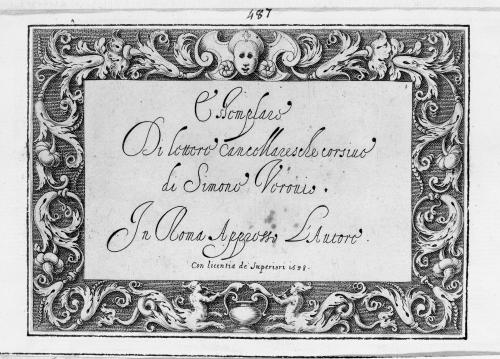 487
Essemplare
Di lettere Cancellaresche corsive
di Simone Veronio.
In Roma Appresso L'Autore.
Con licentia de' Superiori 1638.